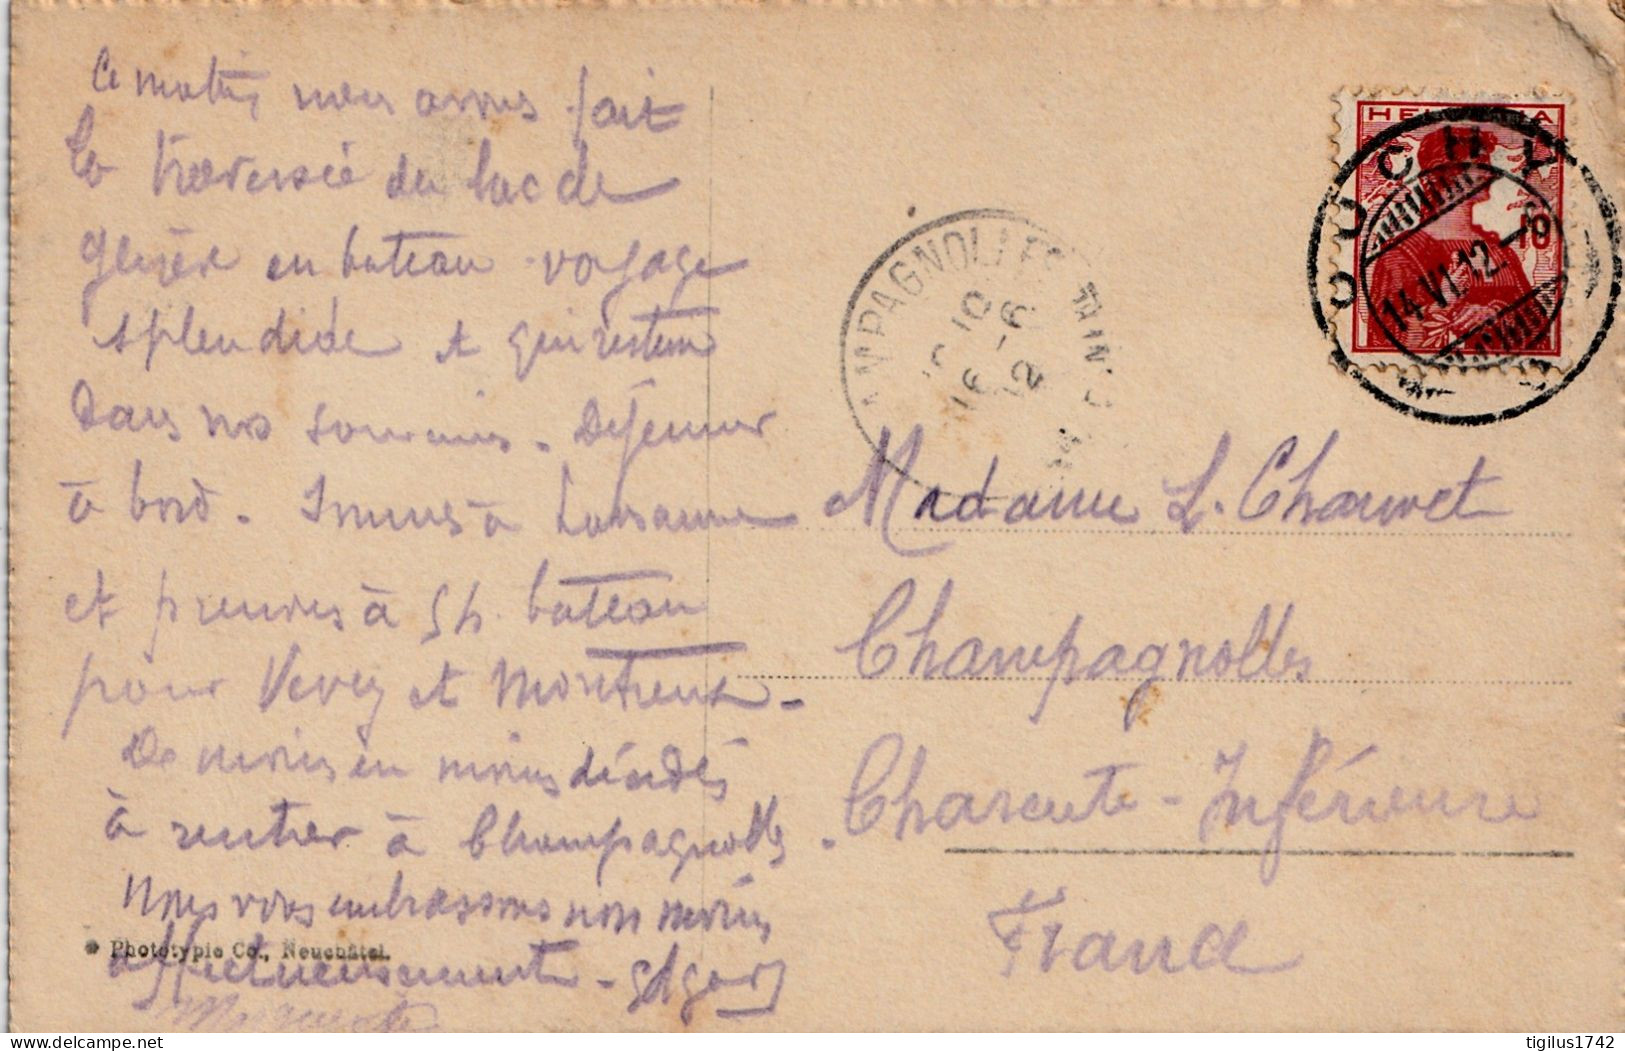 Ce matin, nous avons fait
la traversée du lac de
Genève en bateau - voyage
splendide et qui restera
dans nos souvenirs. Déjeuner
à bord. Sommes à Lausanne
et prenons à 5 h. bateau
pour Vevey et Montreux -
De moins en moins décidés
à rentrer à Champagnolles.
Nous vous embrassons non moins
affectueusement - Edgard
Marguerite
Phototypie Co., Neuchâtel.
HELVETIA
10
OUCHY
14.VI.12.
CHAMPAGNOLLES
10
16 - 6
12
Madame L. Chauvet
Champagnolles
Charente-Inférieure
France
delcampe.net
tigilus1742